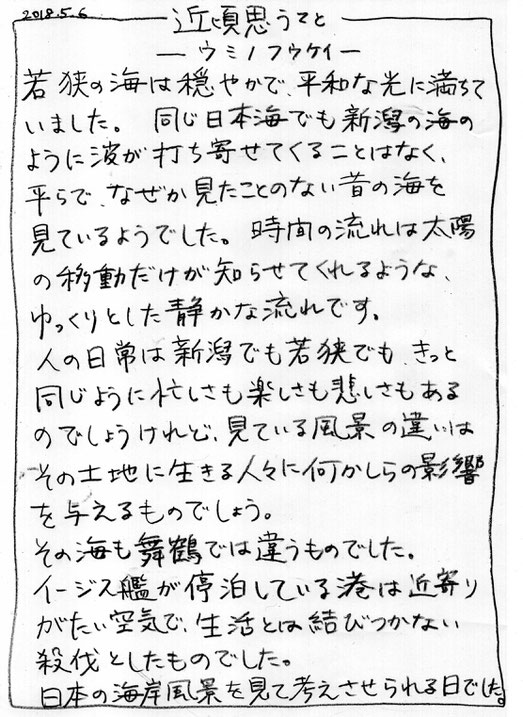 2018.5.6
近頃思うてと
ーウミノフウケイー
若狭の海は穏やかで、平和な光に満ちて
いました。 同じ日本海でも新潟の海の
ように波が打ち寄せてくることはなく、
平らで、なぜか見たことのない昔の海を
見ているようでした。時間の流れは太陽
の移動だけが知らせてくれるような、
ゆっくりとした静かな流れです。
人の日常は新潟でも若狭でも、きっと
同じように忙しさも楽しさも悲しさもある
のでしょうけれど、見ている風景の違いは
その土地に生きる人々に何かしらの影響
を与えるものでしょう。
その海も舞鶴では違うものでした。
イージス艦が停泊している港は近寄り
がたい空気で、生活とは結びつかない
殺伐としたものでした。
日本の海岸風景を見て考えさせられる日でした。